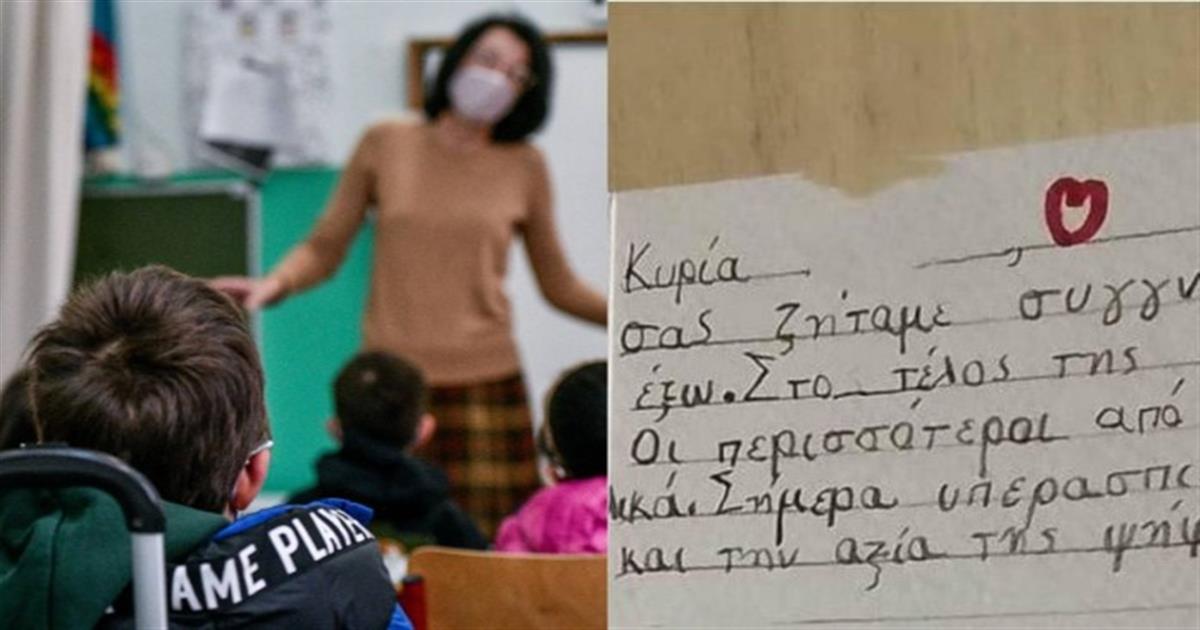 AME PLAYER
Κυρία ,
σας ζήταμε συγγν
έξω. Στο τέλος της
Οι περισσότεροι από
ικά. Σήμερα υπερασπι
και την αξία της ψήφ